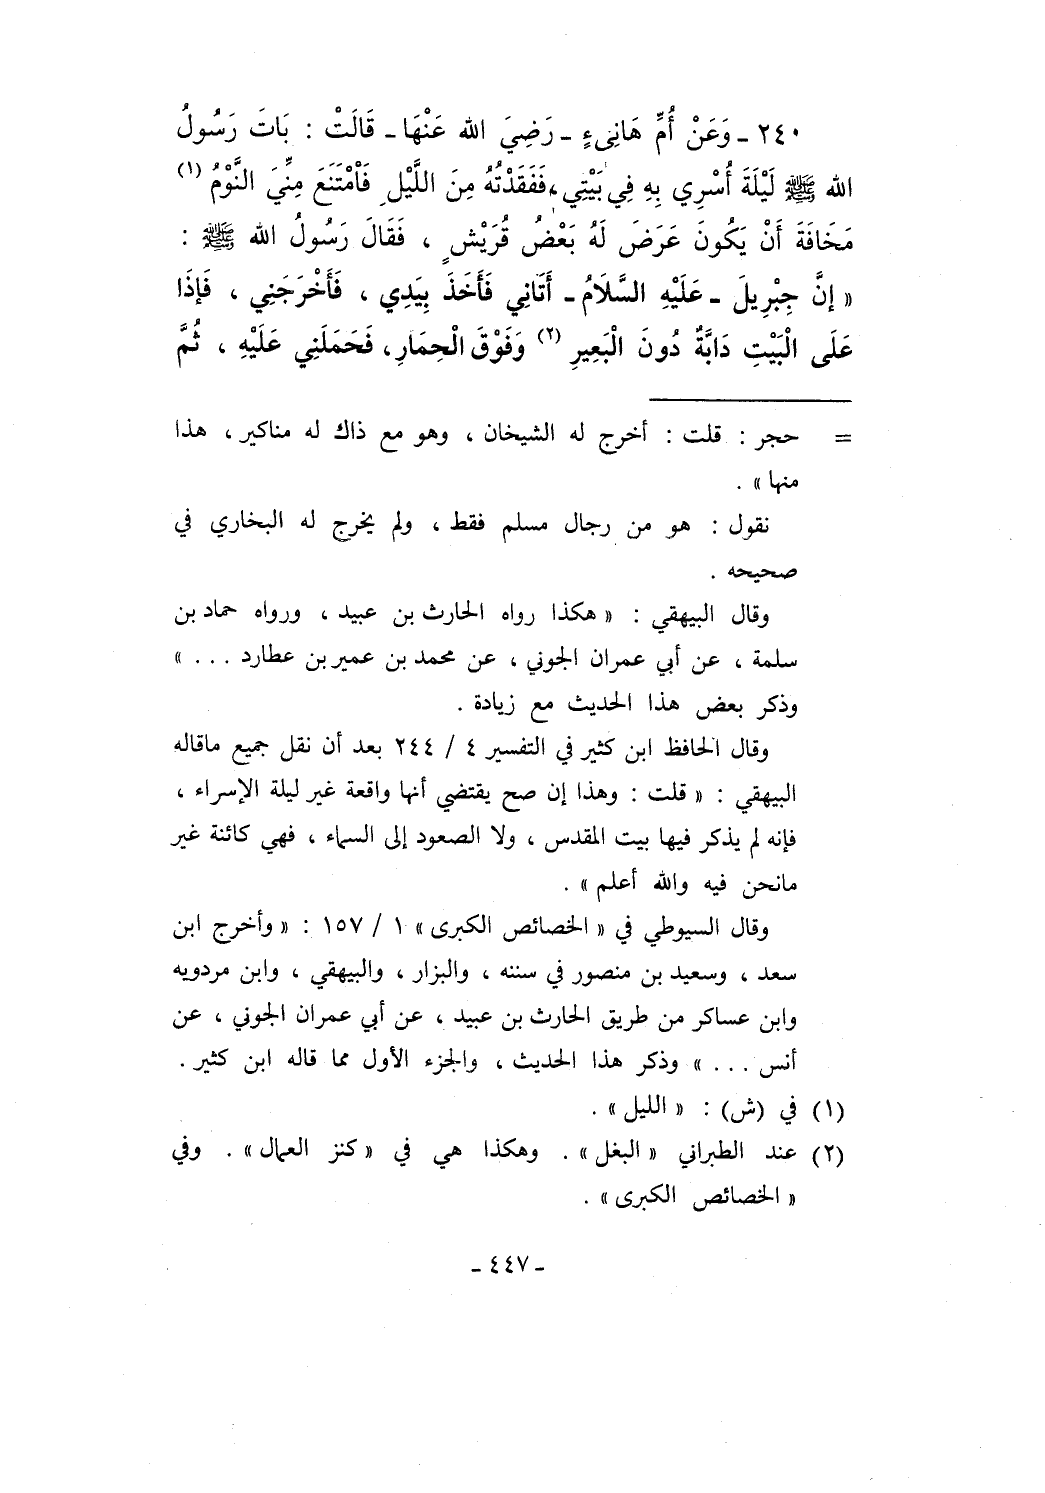 ٢٤٠ ـ وَعَنْ أُمِّ هَانِىءٍ ـ رَضِيَ الله عَنْهَا ـ قَالَتْ : بَاتَ رَسُولُ
الله ﷺ لَيْلَةَ أُسْرِي بِهِ فِي بَيْتِي، فَفَقَدْتُهُ مِنَ اللَّيْلِ فَامْتَنَعَ مِنِّيَ النَّوْمُ (١)
مَخَافَةَ أَنْ يَكُونَ عَرَضَ لَهُ بَعْضُ قُرَيْشٍ ، فَقَالَ رَسُولُ الله ﷺ :
« إنَّ جِبْرِيلَ ـ عَلَيْهِ السَّلاَمُ ـ أَتَانِي فَأَخَذَ بِيَدِي ، فَأَخْرَجَنِي ، فَإذَا
عَلَى الْبَيْتِ دَابَّةٌ دُونَ الْبَعِيرِ (٢) وَفَوْقَ الْحِمَارِ، فَحَمَلَنِي عَلَيْهِ ، ثُمَّ
= حجر : قلت : أخرج له الشيخان ، وهو مع ذاك له مناكير ، هذا
منها » .
نقول : هو من رجال مسلم فقط ، ولم يخرج له البخاري في
صحيحه .
وقال البيهقي : « هكذا رواه الحارث بن عبيد ، ورواه حماد بن
سلمة ، عن أبي عمران الجوني ، عن محمد بن عمير بن عطارد . . . »
وذكر بعض هذا الحديث مع زيادة .
وقال الحافظ ابن كثير في التفسير ٤ / ٢٤٤ بعد أن نقل جميع ماقاله
البيهقي : « قلت : وهذا إن صح يقتضي أنها واقعة غير ليلة الإسراء ،
فإنه لم يذكر فيها بيت المقدس ، ولا الصعود إلى السماء ، فهي كائنة غير
مانحن فيه والله أعلم » .
وقال السيوطي في « الخصائص الكبرى » ١ / ١٥٧ : « وأخرج ابن
سعد ، وسعيد بن منصور في سننه ، والبزار ، والبيهقي ، وابن مردويه
وابن عساكر من طريق الحارث بن عبيد ، عن أبي عمران الجوني ، عن
أنس . . . » وذكر هذا الحديث ، والجزء الأول مما قاله ابن كثير .
(١) في (ش) : « الليل » .
(٢) عند الطبراني « البغل » . وهكذا هي في « كنز العمال » . وفي
« الخصائص الكبرى » .
ـ ٤٤٧ ـ